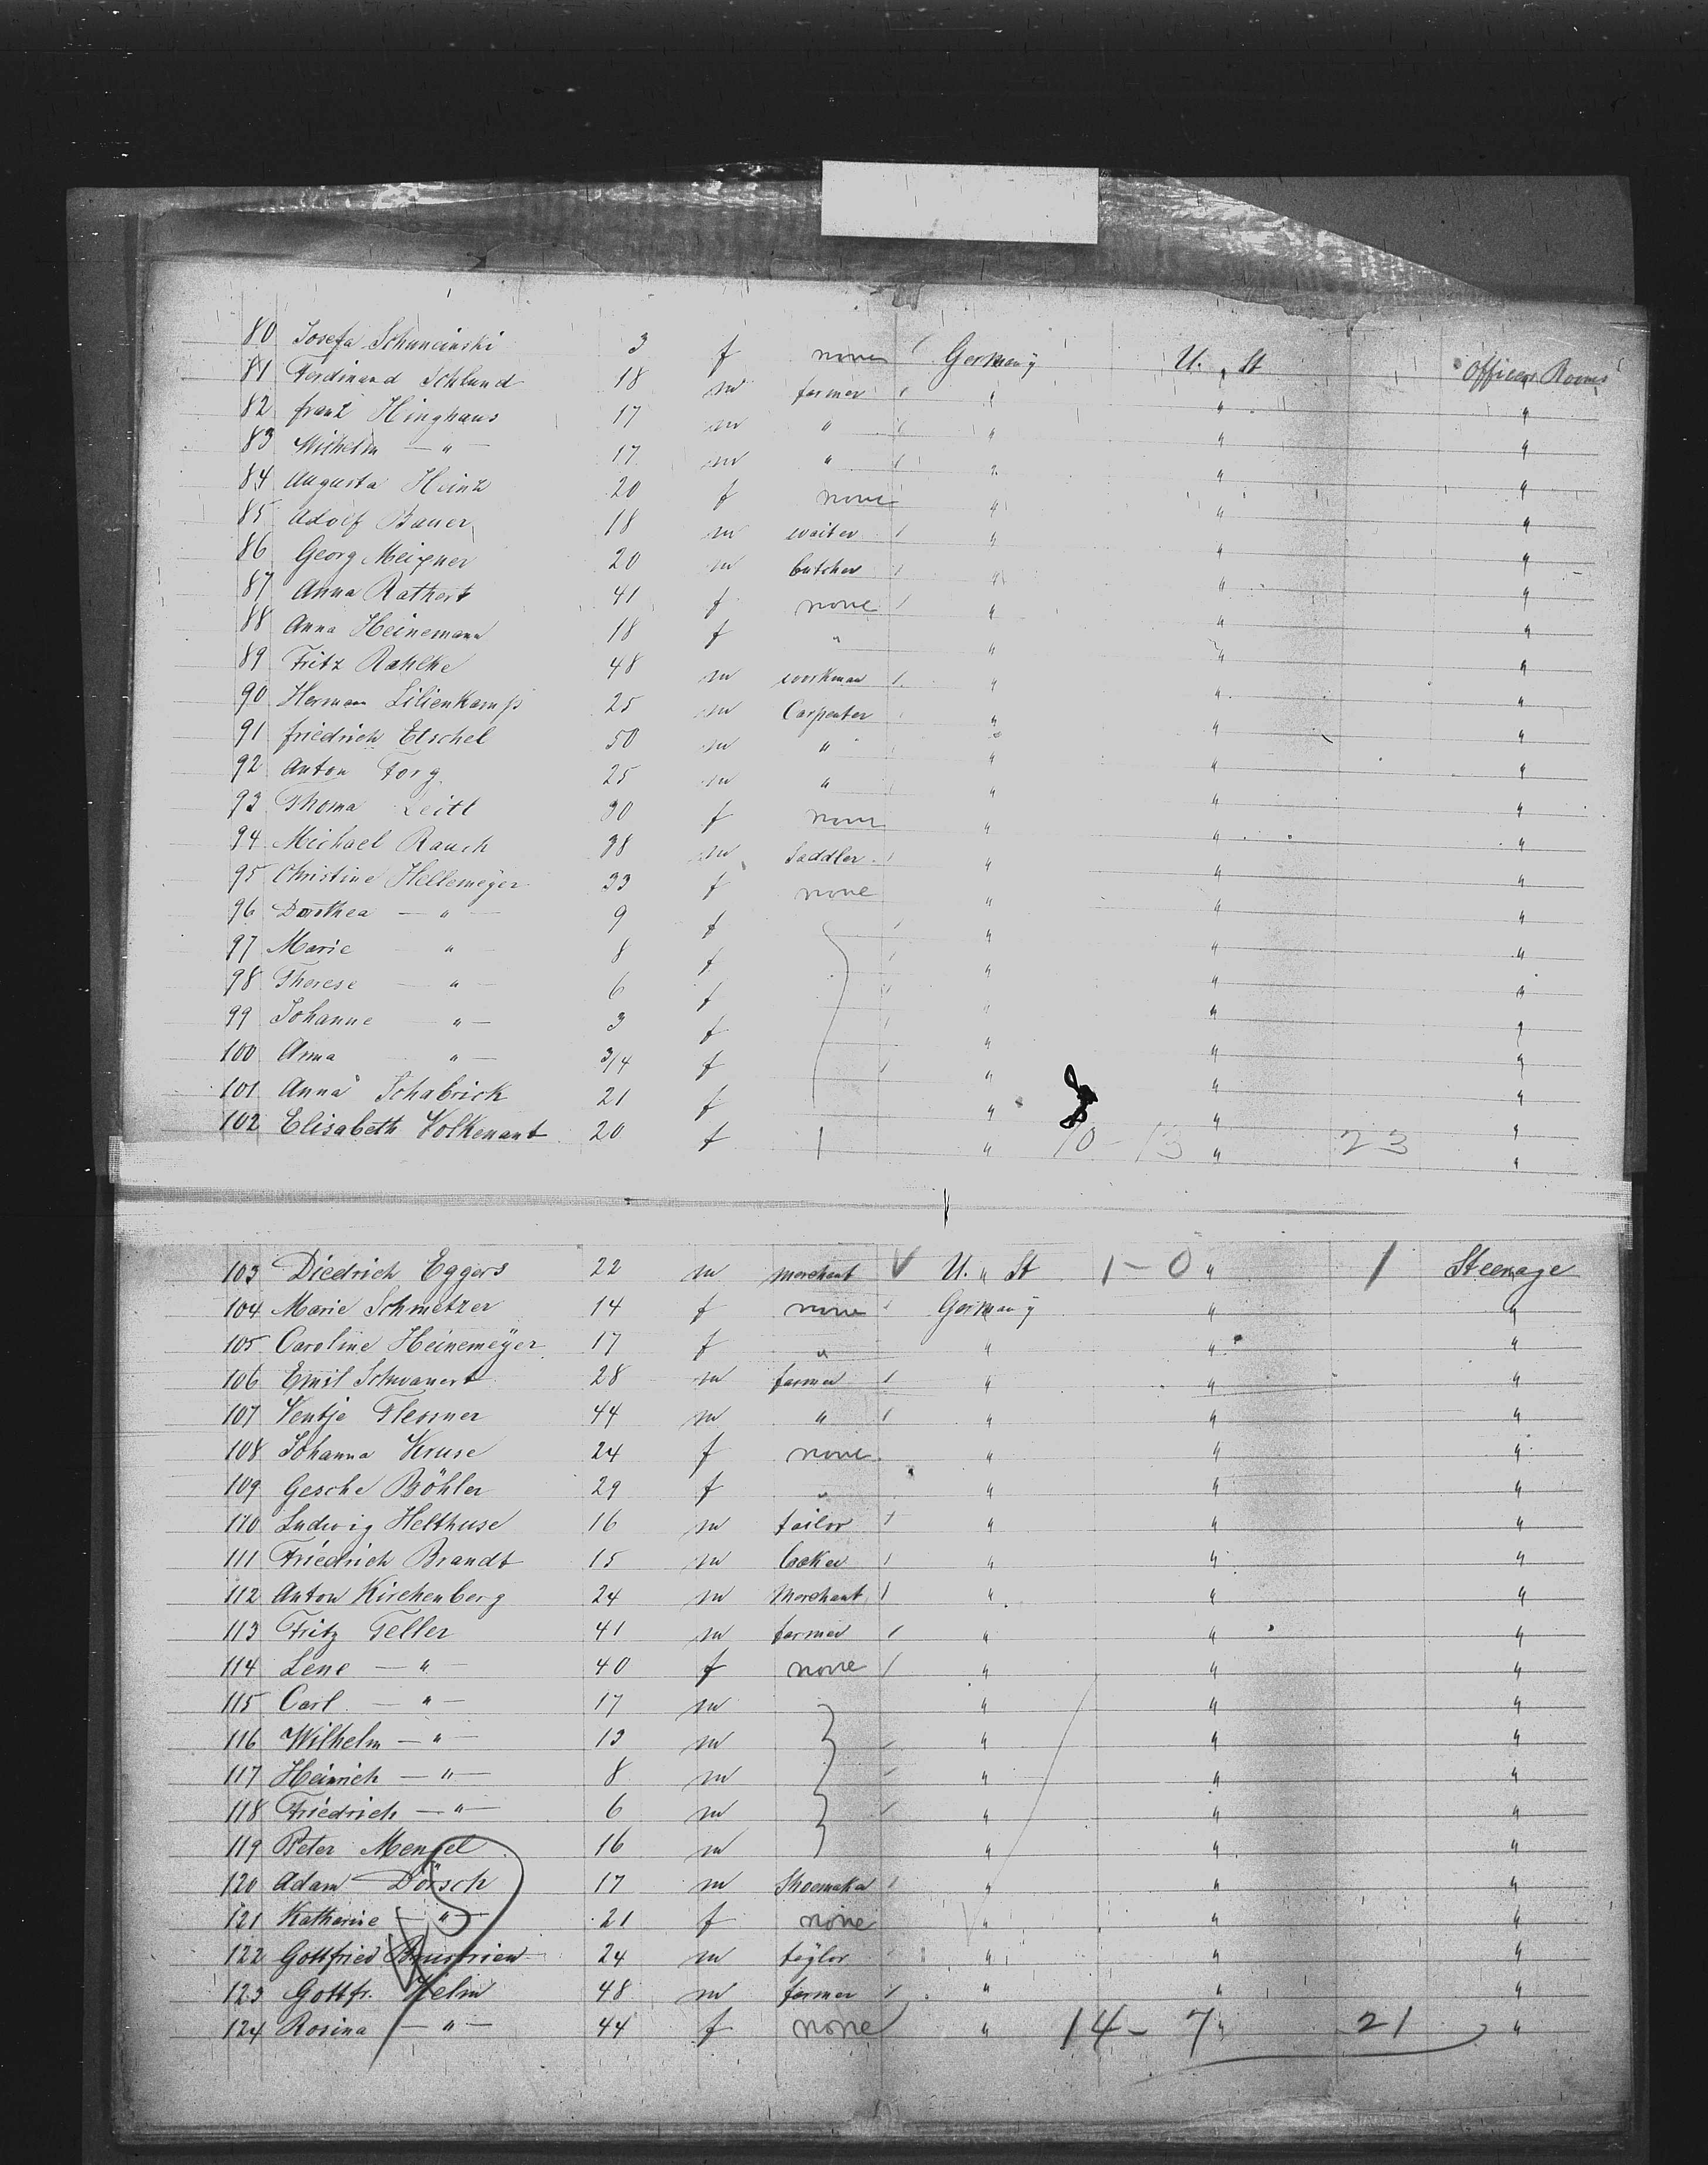 80 Josefa Schuminski 3 f none Germany U. St Officers Rooms
81 Ferdinand Schlund 18 m farmer " " "
82 franz Hinghaus 17 m " " " "
83 Wilhelm — " — 17 m " " " "
84 Augusta Heinz 20 f none " " "
85 Adolf Bauer 18 m waiter " " "
86 Georg Meixner 20 m butcher " " "
87 Anna Rathert 41 f none " " "
88 Anna Heinemann 18 f " " " "
89 Fritz Rahlke 48 m workman " " "
90 Herman Lilienkamp 25 m Carpenter " " "
91 friedrich Etschel 50 m " " " "
92 Anton Forg 25 m " " " "
93 Thoma Zeitl 30 f none " " "
94 Michael Rauch 38 m Saddler " " "
95 Christine Hellemeÿer 33 f none " " "
96 Dorothea — " — 9 f " " "
97 Marie — " — 8 f " " "
98 Therese — " — 6 f " " "
99 Johanne — " — 3 f " " "
100 Anna — " — 3/4 f " " "
101 Anna Schabrick 21 f " " "
102 Elisabeth Volkenant 20 f " 10 - 13 " 23 "
103 Diedrich Eggers 22 m merchant U. St 1 - 0 " 1 Steerage
104 Marie Schmetzer 14 f none Germany " "
105 Caroline Heinemeÿer 17 f " " " "
106 Emil Schwanert 28 m farmer " " "
107 Ventje Flesner 44 m " " " "
108 Johanna Kruse 24 f none " " "
109 Gesche Böhler 29 f " " " "
110 Ludwig Helthuse 16 m tailor " " "
111 Friedrich Brandt 15 m baker " " "
112 Anton Kirchenberg 24 m Merchant " " "
113 Fritz Teller 41 m farmer " " "
114 Lene — " — 40 f none " " "
115 Carl — " — 17 m " " "
116 Wilhelm — " — 13 m " " "
117 Heinrich — " — 8 m " " "
118 Friedrich — " — 6 m " " "
119 Peter Mengel 16 m " " "
120 Adam Dörsch 17 m Shoemaker " " "
121 Katharine — " — 21 f none " " "
122 Gottfried 24 m taÿlor " " "
123 Gottfr. Helm 48 m farmer " " "
124 Rosina — " — 44 f none " 14 - 7 " 21 "